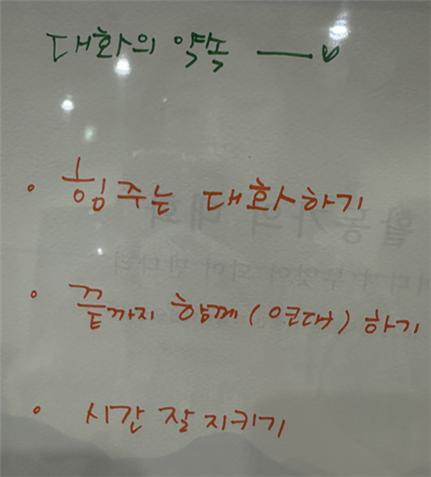 대화의 약속
• 힘주는 대화하기
• 끝까지 함께(연대)하기
• 시간 잘 지키기